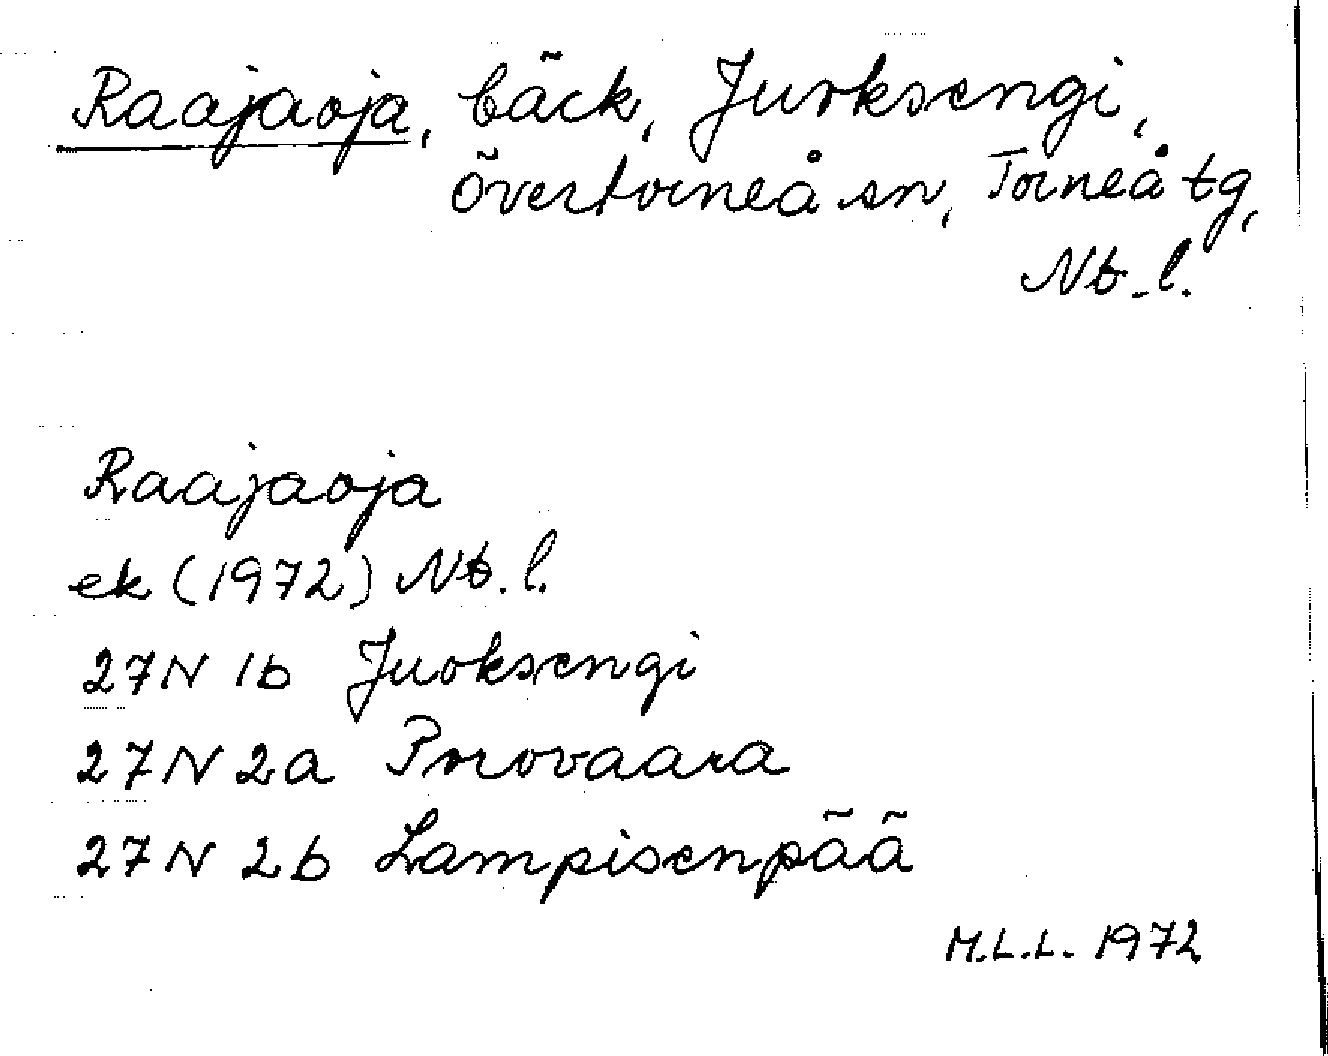 Raajaoja, bäck, Juoksengi,
Övertorneå sn, Torneå tg,
Nb.l.
Raajaoja
ek (1972) Nb.l.
27N 1b Juoksengi
27N 2a Porovaara
27N 2b Lampisenpää
M.L.L. 1972